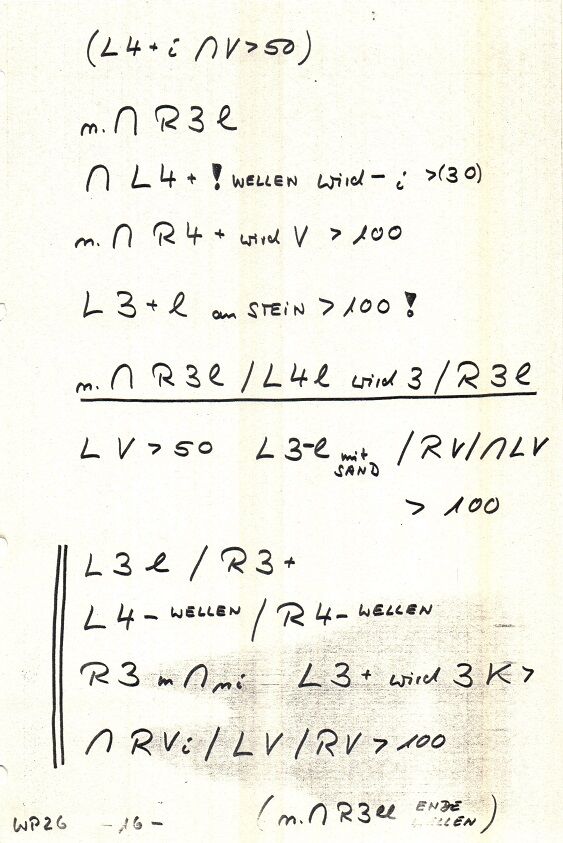 (L4+i ∩V>50)
m.∩ R3l
∩ L4+! WELLEN wird - i >(30)
m.∩ R4+ wird V > 100
L3+l am STEIN > 100!
m.∩ R3l /L4l wird 3/R3l
LV > 50 L3-l mit SAND /RV/∩LV
> 100
L3l / R3+
L4- WELLEN / R4- WELLEN
R3 m∩mi L3+ wird 3K>
∩ RVi/LV/RV > 100
(m.∩R3ll ENDE WELLEN)
WP26 -16-